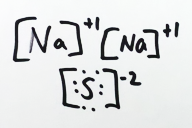 [Na]⁺¹ [Na]⁺¹
[:S:]⁻²